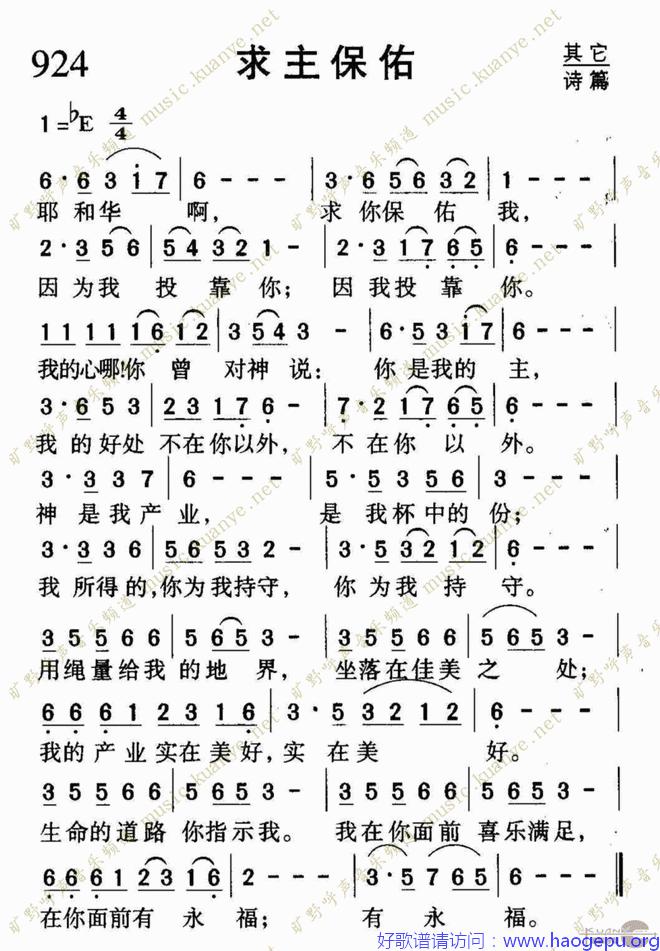 924 求主保佑 其它
诗篇
1=♭E 4/4
6·6 3 i 7 | 6 - - - | 3·6 5 6 3 2 | 1 - - - |
耶 和华 啊, 求 你保 佑 我,
2·3 5 6 | 5 4 3 2 1 - | 2·3 1 7 6 5 | 6 - - - |
因 为我 投 靠 你; 因 我投 靠 你。
1 1 1 1 1 6 1 2 | 3 5 4 3 - | 6·5 3 i 7 | 6 - - - |
我的心哪!你 曾 对神 说: 你 是我的 主,
3·6 5 3 | 2 3 1 7 6 - | 7·2 1 7 6 5 | 6 - - - |
我 的好处 不在你以外, 不 在你 以 外。
3·3 3 7 | 6 - - - | 5·5 3 5 6 | 3 - - - |
神 是我产 业, 是 我杯中的 份;
3·3 3 6 | 5 6 5 3 2 - | 3·5 3 2 1 2 | 6 - - - |
我 所得的,你为我持守, 你 为我 持 守。
3 5 5 6 6 | 5 6 5 3 - | 3 5 5 6 6 | 5 6 5 3 - |
用绳量给我 的地 界, 坐落在佳美 之 处;
6 6 6 1 2 3 1 6 | 3·5 3 2 1 2 | 6 - - - |
我的 产 业实在 美 好,实 在美 好。
3 5 5 6 6 | 5 5 6 3 - | 3 5 5 6 6 | 5 5 6 3 - |
生命的道路 你指示我。 我在你面前 喜乐满足,
6 6 6 1 2 3 1 6 | 2 - - - | 3·5 7 6 5 | 6 - - - ‖
在你面前有 永 福; 有 永 福。
旷野呼声音乐频道 music.kuanye.net
好歌谱请访问：www.haogepu.com